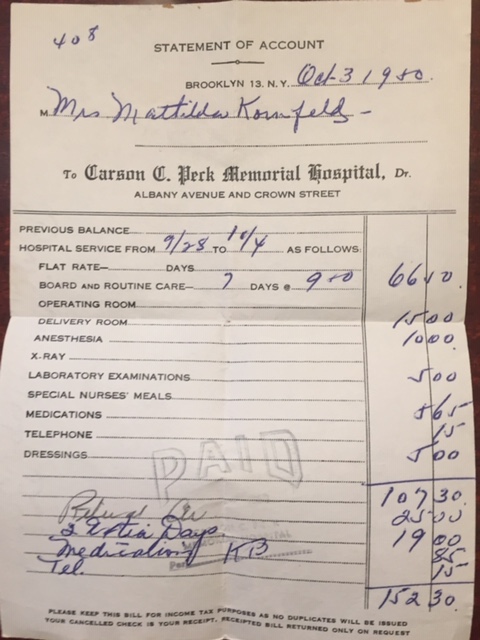 408
STATEMENT OF ACCOUNT
BROOKLYN 13, N.Y. Oct 3 1950.
M Mrs Mattilda Kornfelds -
To Carson C. Peck Memorial Hospital, Dr.
ALBANY AVENUE AND CROWN STREET
PREVIOUS BALANCE
HOSPITAL SERVICE FROM 9/28 TO 10/4 AS FOLLOWS:
FLAT RATE— DAYS
BOARD AND ROUTINE CARE— 7 DAYS @ 9 50 66 50.
OPERATING ROOM
DELIVERY ROOM 15 00
ANESTHESIA 10 00.
X-RAY
LABORATORY EXAMINATIONS 5 00
SPECIAL NURSES' MEALS
MEDICATIONS 5 65
TELEPHONE 15
DRESSINGS 5 00
PAID
107 30.
25 00
2 Extra Days 19 00
Medications KB 85
Tel. 15
152 30
PLEASE KEEP THIS BILL FOR INCOME TAX PURPOSES AS NO DUPLICATES WILL BE ISSUED
YOUR CANCELLED CHECK IS YOUR RECEIPT, RECEIPTED BILL RETURNED ONLY ON REQUEST